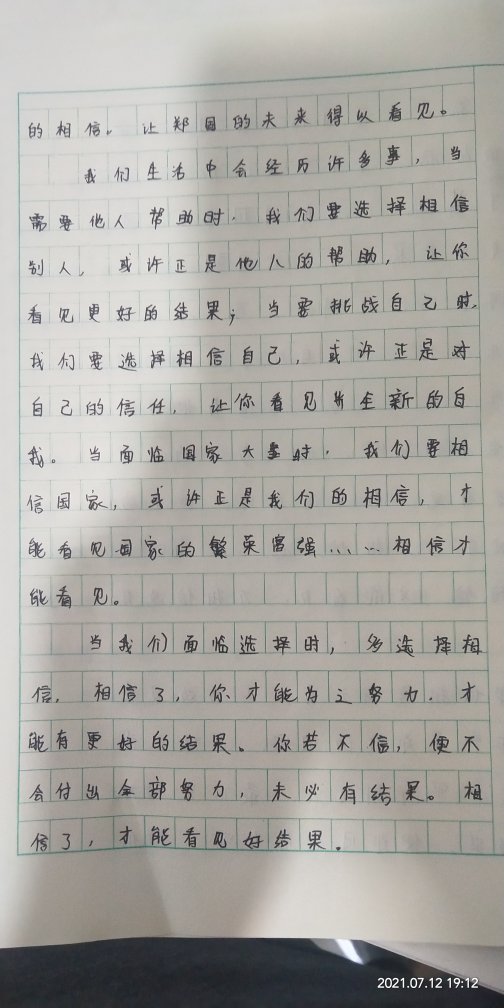 的相信。让郑国的未来得以看见。
我们生活中会经历许多事，当
需要他人帮助时，我们要选择相信
别人，或许正是他人的帮助，让你
看见更好的结果；当要挑战自己时，
我们要选择相信自己，或许正是对
自己的信任，让你看见为全新的自
我。当面临国家大事时，我们要相
信国家，或许正是我们的相信，才
能看见国家的繁荣富强……相信才
能看见。
当我们面临选择时，多选择相
信，相信了，你才能为之努力，才
能有更好的结果。你若不信，便不
会付出全部努力，未必有结果。相
信了，才能看见好结果。
2021.07.12 19:12